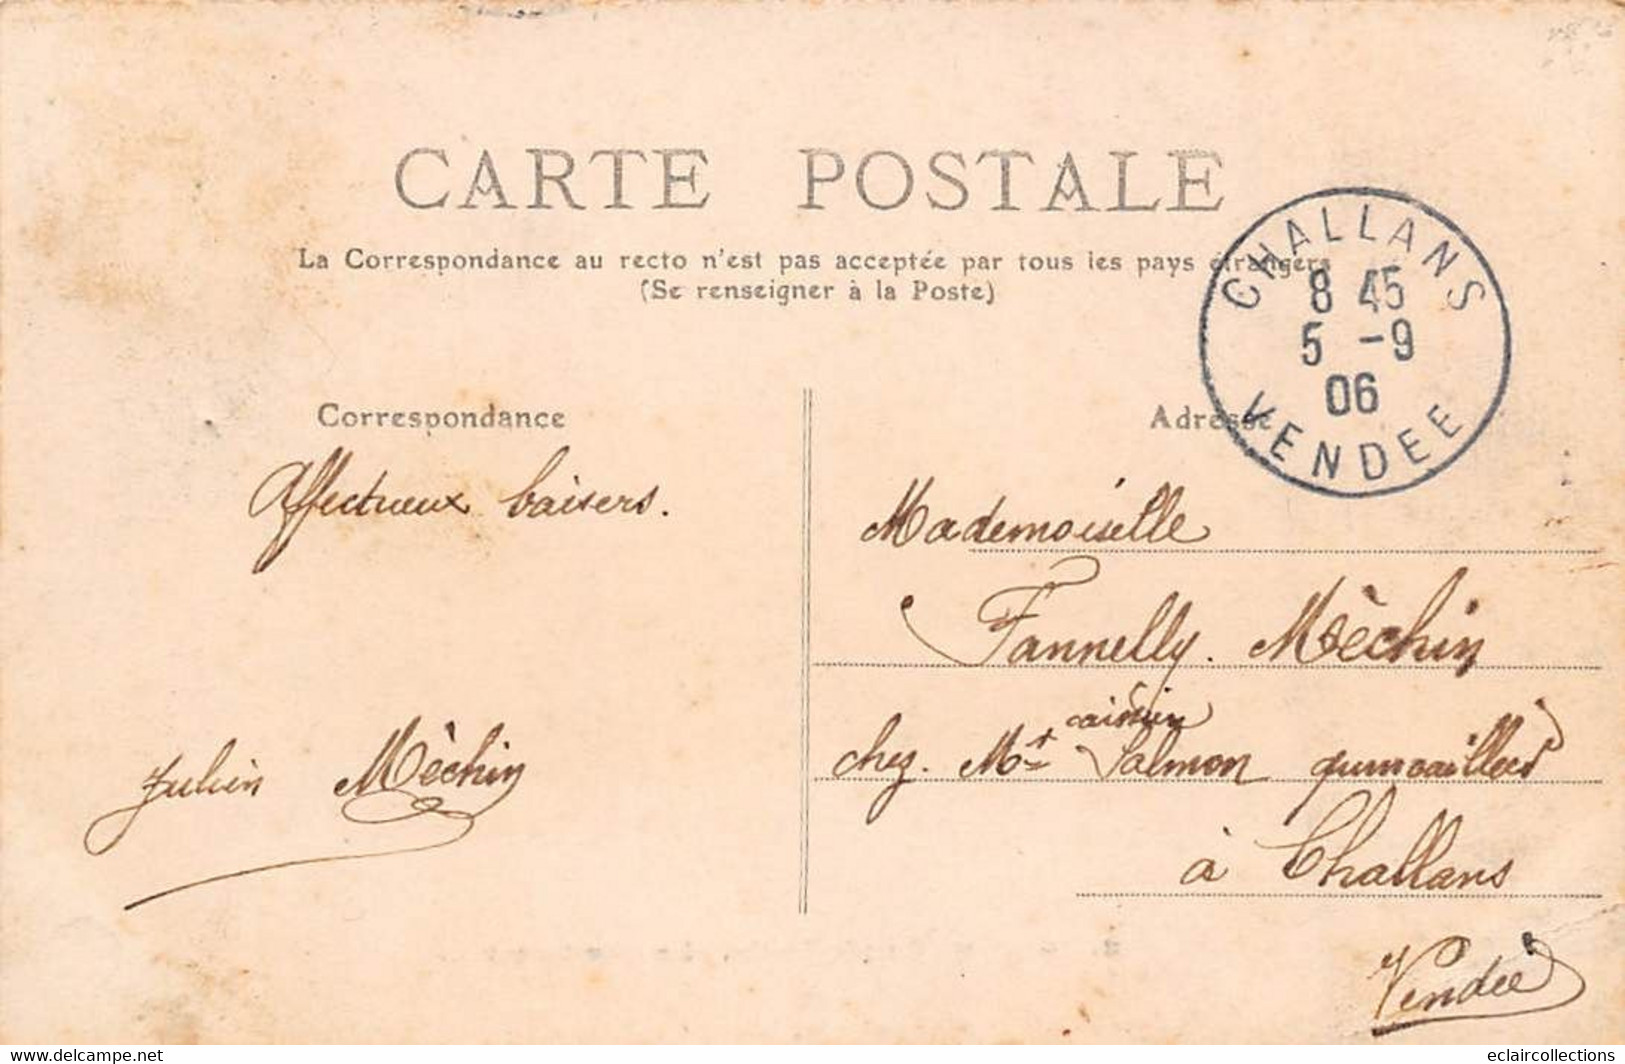 CARTE POSTALE
La Correspondance au recto n'est pas acceptée par tous les pays étrangers
(Se renseigner à la Poste)
CHALLANS
8 45
5 -9
06
VENDEE
Correspondance
Affectueux baisers.
Julien Mèchin
Adresse
Mademoiselle
Fannelly. Mèchin
chez. Mr Salmon
à Challans
Vendée
www.delcampe.net
eclaircollections